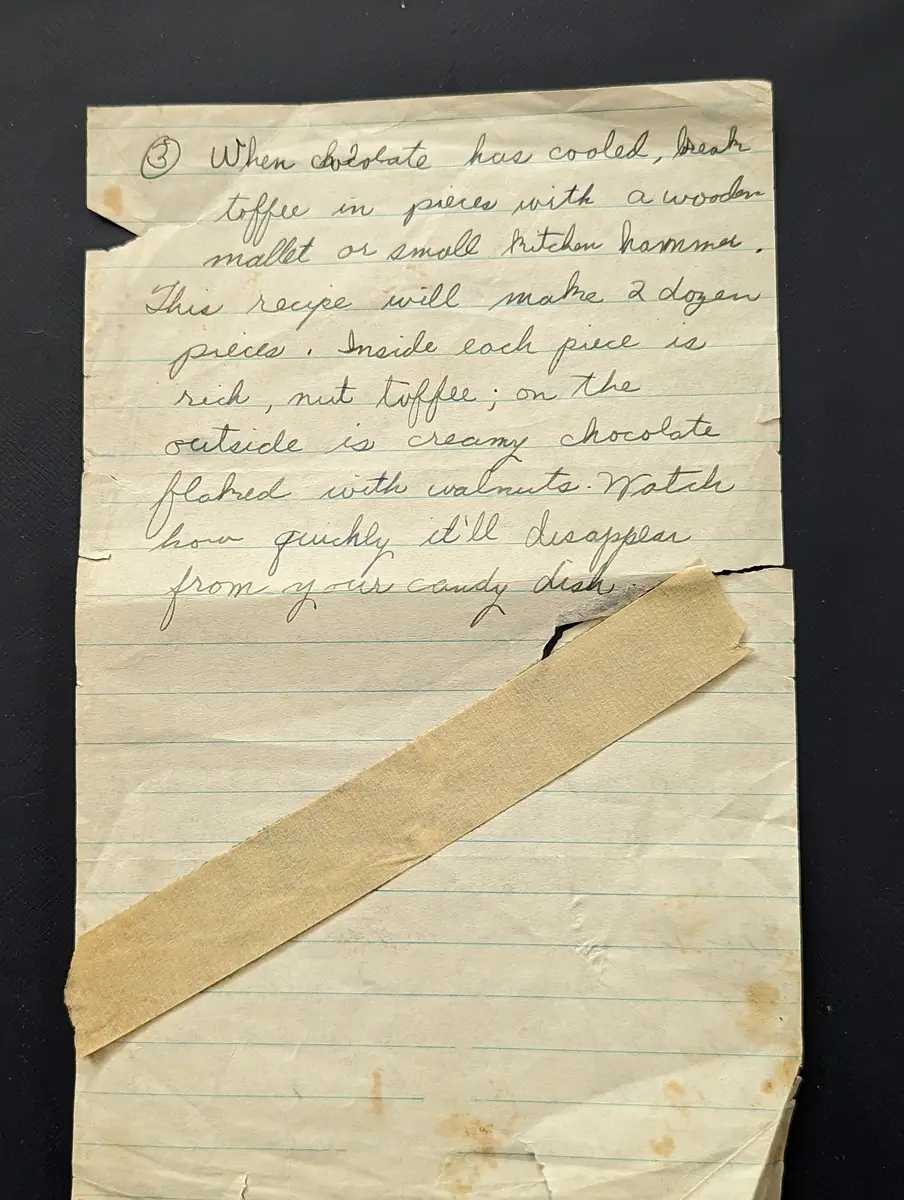 ③ When chocolate has cooled, break
toffee in pieces with a wooden
mallet or small kitchen hammer.
This recipe will make 2 dozen
pieces. Inside each piece is
rich, nut toffee; on the
outside is creamy chocolate
flaked with walnuts. Watch
how quickly it'll disappear
from your candy dish.